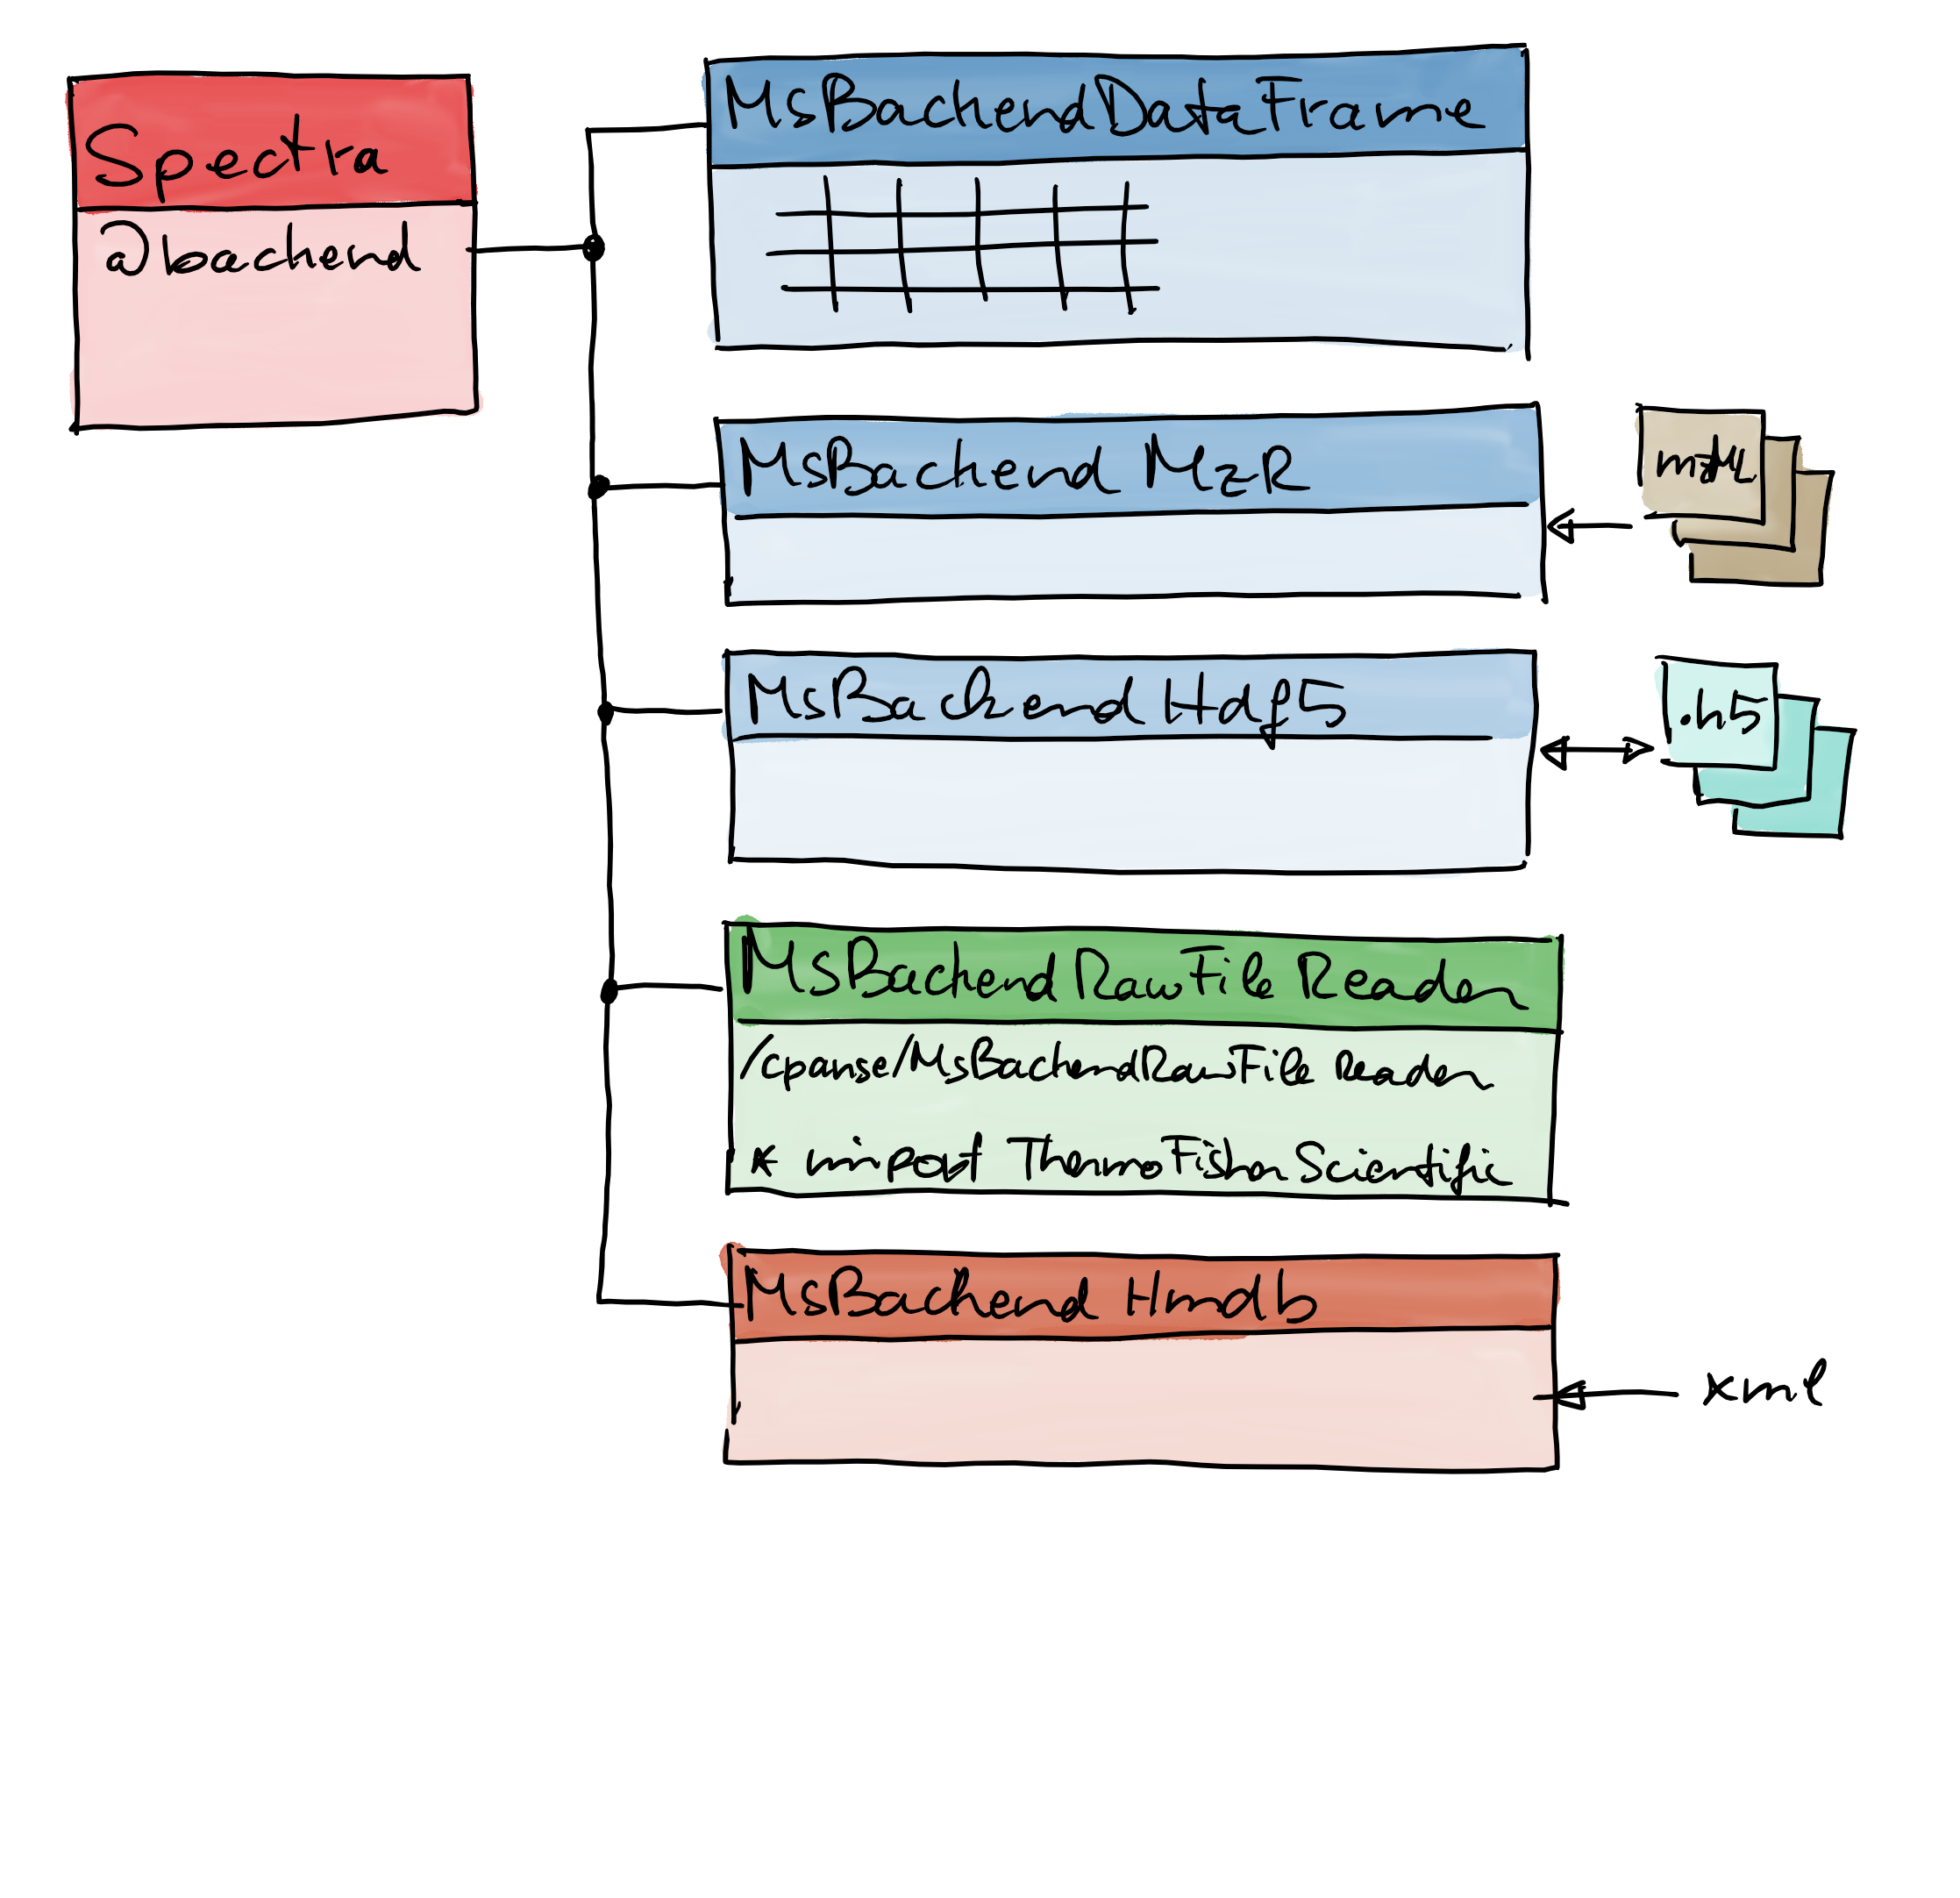 Spectra
@backend
MsBackendDataFrame
MsBackend MzR
mzML
MsBackend Hdf5
.h5
MsBackendRawFileReader
/cpanse/MsBackendRawFileReader
* import ThermoFisherScientific
MsBackend Hmdb
xml